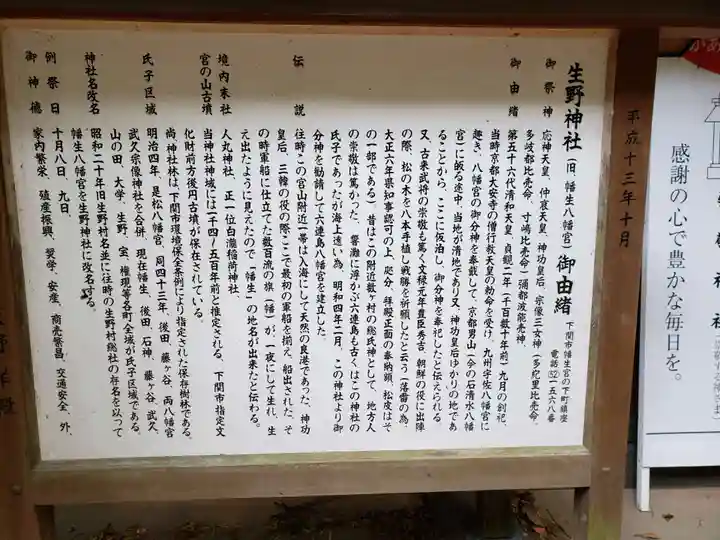 生野神社(旧幡生八幡宮)御由緒
下関市幡生宮の下町鎮座
電話52-一五六八番
御祭神 応神天皇、仲哀天皇、神功皇后、宗像三女神(多紀里比売命、
多岐都比売命、寸嶋比売命)彌都波能売神、
御由緒 第五十六代清和天皇、貞観二年(千百数十年前)九月の創祀、
当時京都大安寺の僧行教天皇の勅命を受け、九州宇佐八幡宮に
趣き、八幡宮の御分神を奉戴して、京都男山(今の石清水八幡
宮)に皈る途中、当地が清地であり又、神功皇后ゆかりの地であ
ることから、ここに仮泊し、御分神を奉祀したと伝えられる
又、古来武将の崇敬も篤く文禄元年豊臣秀吉、朝鮮の役に出陣
の際、松の木を八本手植し戦勝を祈願したと云う(落雷の為、
大正六年県知事認可の上、処分、拝殿正面の奉納額、松皮はそ
の一部である)昔はこの附近数ヶ村の総氏神として、地方人
の崇敬は篤かった、響灘に浮かぶ六連島も古くはこの神社の
氏子であったが海上遠い為、明和四年二月、この神社より御
分神を勧請して六連島八幡宮を建立した
伝説 往時この宮山附近一帯は入海にして天然の良港であった、神功
皇后、三韓の役の際、ここで最初の軍船を揃え、船出された、そ
の時軍船に仕立てた数百流の旗(幡)が、一夜にして生れ、生
え出たように見えたので「幡生」の地名が出来たと伝わる。
境内末社 人丸神社、正一位白瀧稲荷神社
宮の山古墳 当神社神域には(千四〜五百年前)と推定される、下関市指定文
化財前方後円古墳が保存されている。
尚、神社林は、下関市環境保全条例により指定された保存樹林である。
氏子区域 明治四年、是松八幡宮、同四十三年、後田、藤ヶ谷、両八幡宮
武久宗像神社を合併、現在幡生、後田、石神、藤ヶ谷、武久、
山の田、大学、生野、宝、権現等各町全域が氏子区域である。
神社名改名 昭和二十年旧生野村名並に往時の生野村総社の存名を以って
幡生八幡宮を生野神社に改名する。
例祭日 十月八日、九日、
御神徳 家内繁栄、殖産振興、奨学、安産、商売繁昌、交通安全、外、
平成十三年十月
感謝の心で豊かな毎日を。